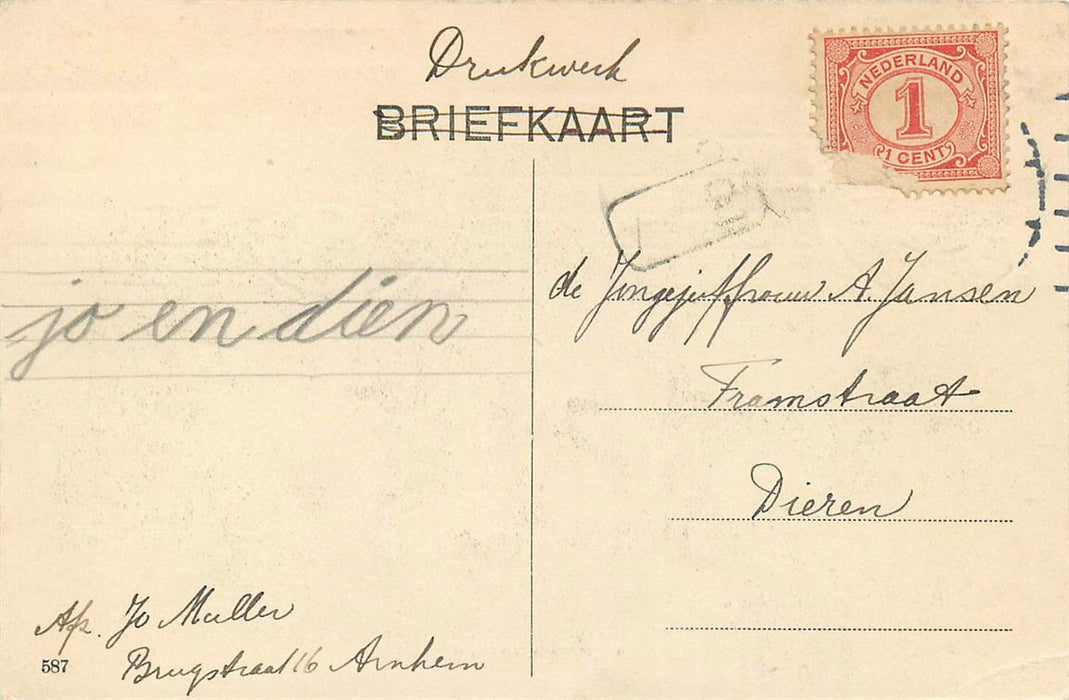 Drukwerk
BRIEFKAART
NEDERLAND
1
1 CENT
jo en diên
de Jongejuffrouw A. Jansen
Tramstraat
Dieren
Afz. Jo Muller
Brugstraat 16 Arnhem
587